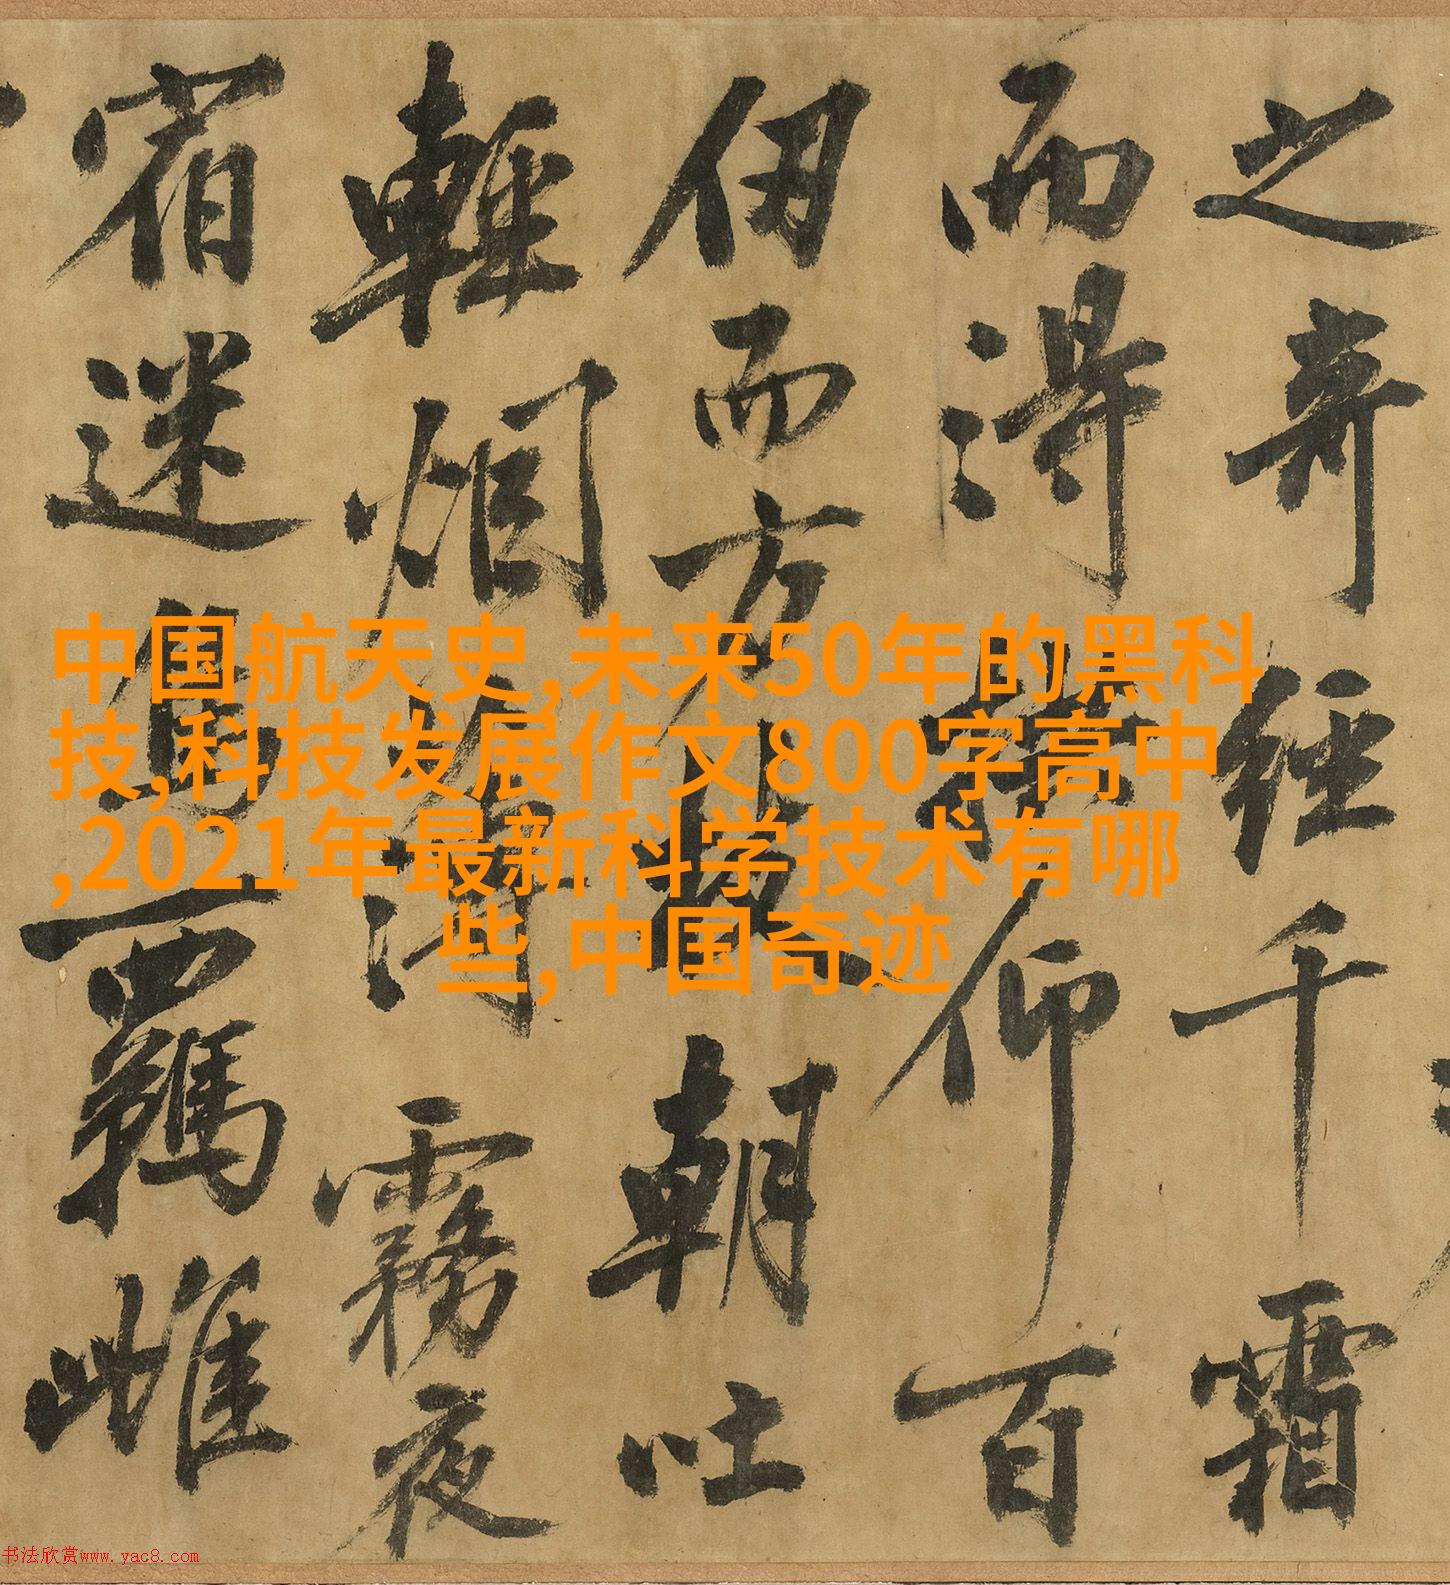 中国航天史,未来50年的黑科
技,科技发展作文800字高中
,2021年最新科学技术有哪
些,中国奇迹
之奇經千霜
而得拱仰百
仞而方枝朝吐
輕烟霧夜
宿迷鳥羈雌
书法欣赏www.yac8.com